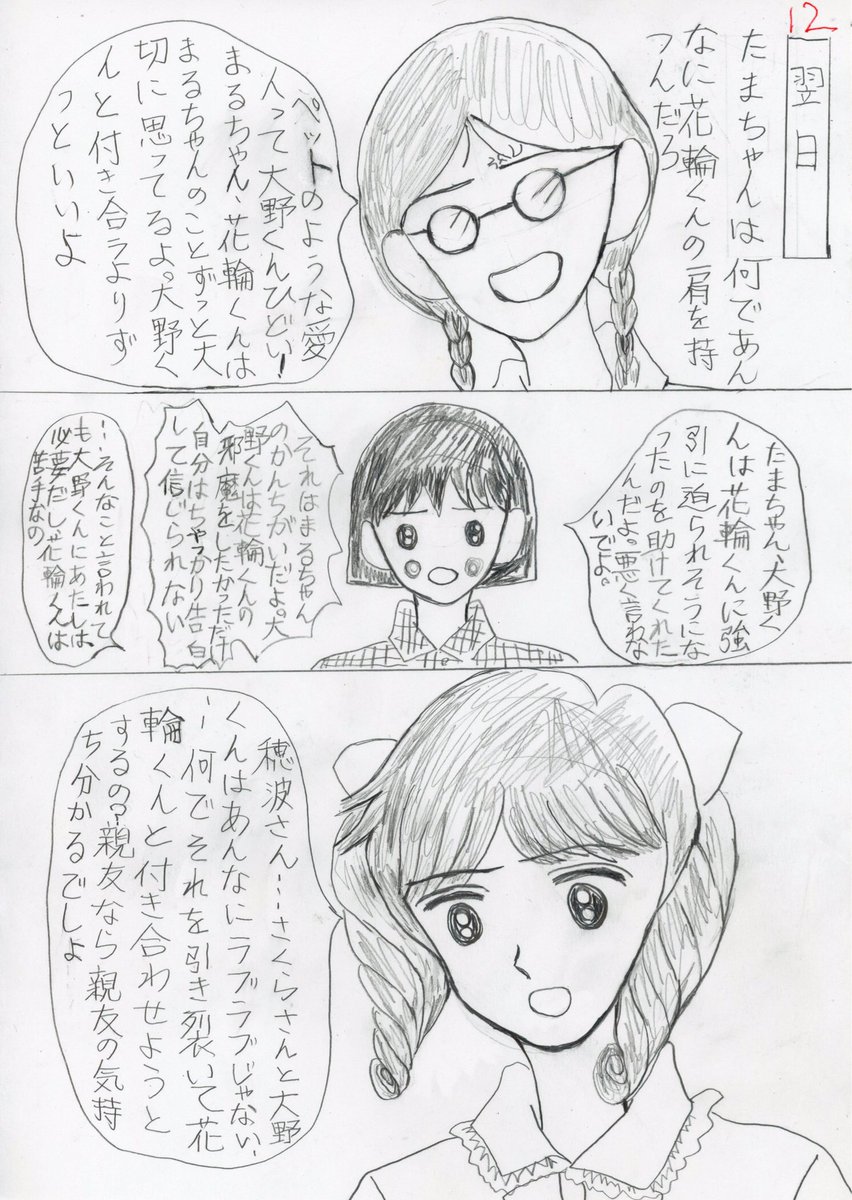 12
翌日
たまちゃんは何であん
なに花輪くんの肩を持
つんだろ
ペットのような愛
人って大野くんひどい!
まるちゃん、花輪くんは
まるちゃんのことずっと大
切に思ってるよ。大野く
んと付き合うよりず
っといいよ
たまちゃん、大野く
んは花輪くんに強
引に迫られそうにな
ったのを助けてくれた
んだよ。悪く言わな
いでよ。
それはまるちゃん
のかんちがいだよ。大
野くんは花輪くんの
邪魔をしたかっただけ
自分はちゃっかり告白
して信じられない
…そんなこと言われて
も大野くんにあたしは
必要だしゃ花輪くんは
苦手なの
穂波さん…さくらさんと大野
くんはあんなにラブラブじゃない、
…何でそれを引き裂いて花
輪くんと付き合わせようと
するの?親友なら親友の気持
ち分かるでしよ